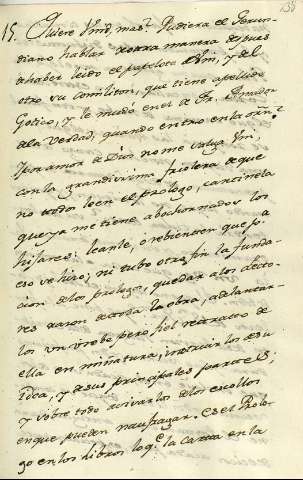 138
15. Quiere Vmd, mas? Pudiera el Gerun-
diano hablar de otra manera despues
de haber leido el papelote de Vm, y del
otro su Comiliton, que tiene apellido
Gotico, y le mudó en el de Fr. Amador
de la Verdad, quando entro en la orn.?
Por amor de Dios no me valga Vm,
con la grandisima friolera de que
no todos leen el prologo, cantinela
que ya me tiene abochornados los
hijares: leanle, ó rebienten que pa
eso se hizo; ni tubo otro fin la funda-
cion de los prologos, que dar a los Lecto-
res razon de toda la obra, adelantar-
los un vrebe pero fiel retratico de
ella en miñatura, instruir los de su
idea, y de sus principales partes;
y sobre todo avisarlos de los escollos
en que pueden naufragar. Es el Prolo-
go en los libros lo q.e la carta en la